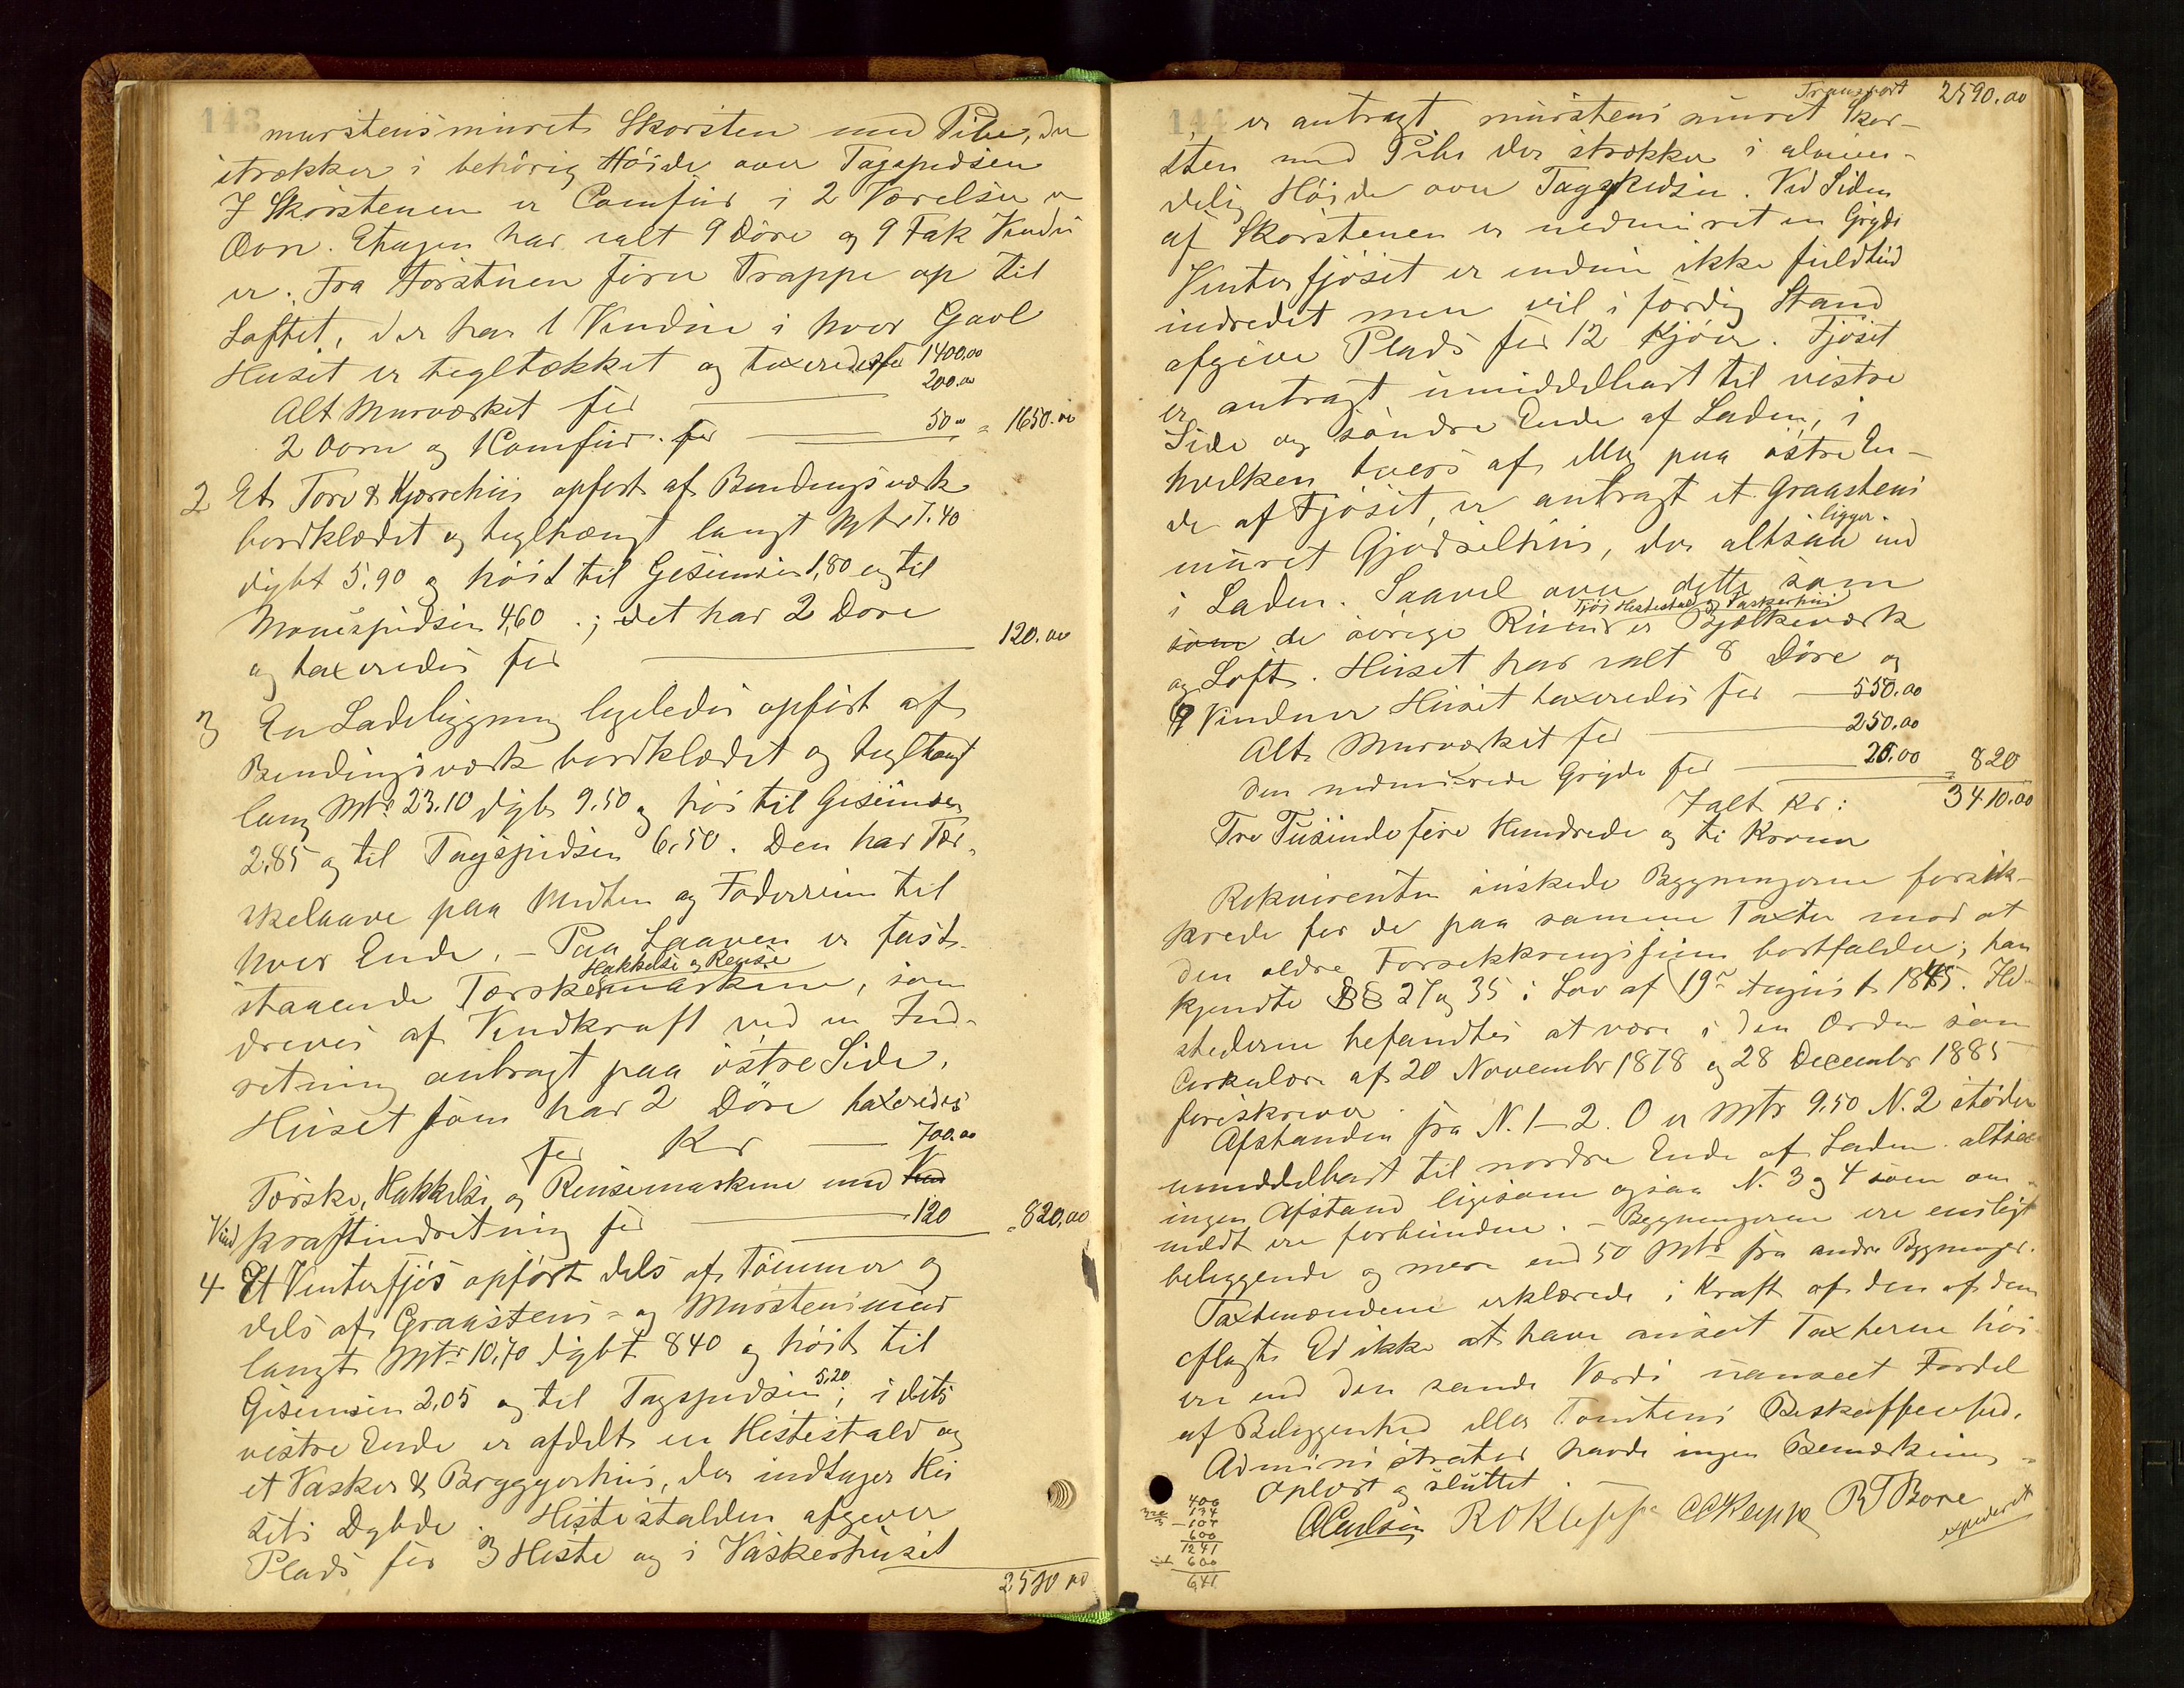 143
murstensmuret Skorsten med Pibe, der
strækker i behörig Höide over Tagspidsen
I Skorstenen er Comfur i 2 Værelser er
Ovn. Etagen har ialt 9 Döre og 9 Fak Vindu
er. Fra Forstuen förer Trappe op til
Loftet, der har 1 Vindue i hver Gavl
Huset er tegltækket og taxeredes for 1400.00
Alt Murværket for 200.00
2 Ovne og 1 Comfur for 50 00 = 1650.00
2 Et Torv & Kjærrehus opfört af Bindingsværk
bordklædet og teglhængt langt Mtr 7.40
dybt 5.90 og höit til Gesimsen 1,80 og til
Mönespidsen 4,60 .; det har 2 Döre
og taxeredes for 120.00
3 En Ladebygning ligeledes opfört af
Bindingsværk bordklædet og teglhængt
lang Mtr. 23.10 dyb 9.50 og höi til Gesimsen
2.85 og til Tagspidsen 6.50. Den har Tær-
skelaave paa Midten og Foderrum til
hver Ende. - Paa Laaven er fast-
Hakkelse og Rense
staaende Tærskemaskine, som
drives af Vindkraft ved en Ind-
retning anbragt paa östre Side.
Huset som har 2 Döre taxeredes
for Kr 700.00
Tærske, Hakkelse og Rensemaskine med Vind
Vind kraftindretning for 120 = 820,00
4 Et Vinterfjös opfört dels af Tömmer og
dels af Graastens- og Murstensmur
langt Mtr 10,70 dybt 840 og höit til
Gesimsen 2,05 og til Tagspidsen 5,20; i dets
vestre Ende er afdelt en Hestestald og
et Vasker & Bryggerhus, der indtager Hu
sets Dybde. Hestestalden afgiver
Plads for 3 Heste og i Vaskerhuset
2590 00
144
Transport 2590.00
er anbragt murstens muret Skor-
sten med Pibe der strækker i alminde-
delig Höide over Tagspidsen. Ved Siden
af Skorstenen er nedmuret en Gryde
Vinterfjöset er endnu ikke fuldtud
indredet men vil i færdig Stand
afgive Plads for 12 Kjöer. Fjöset
er anbragt umiddelbart til vestre
Side og söndre Ende af Laden, i
hvilken tvers af eller paa östre En-
de af Fjöset, er anbragt et Graastens
muret Gjödselhus, der altsaa ligger ind
i Laden. Saavel over dette som
Fjös Hestestald og Vaskerhus
som de övrige Rum er Bjelkeværk
og Loft. Huset har ialt 8 Döre og
9 Vinduer Huset taxeredes for 550.00
Alt Murværket for 250.00
Den nedmurede Gryde for 20.00 = 820
Ialt Kr: 3410.00
Tre Tusinde fire Hundrede og ti Kroner
Rekvirenten önskede Bygningerne forsik-
krede for de paa samme Taxter mod at
den ældre Forsikkringssum bortfalder; han
kjendte §§ 27 og 35 i Lov af 19de August 1845. Ild-
stederne befandtes at være i den Orden som
Cirkulære af 20 November 1878 og 28 December 1885
foreskriver.
Afstanden fra N. 1-2. O er Mtr 9.50 N. 2 stöder
umiddelbart til nordre Ende af Laden altsaa
ingen Afstand ligesom ogsaa N. 3 og 4 som om-
meldt ere forbundne. - Bygningerne ere ensligt
beliggende og mere end 50 Mtr fra andre Bygninger.
Taxtmændene erklærede i Kraft af den af dem
aflagte Ed ikke at have ansat Taxterne höi-
ere end den sande Værdi uanseet Fordel
af Beliggenhed eller Tomtens Beskaffenhed.
Administrator havde ingen Bemærkning
Oplæst og sluttet.
R O Kleppe R T Bore
expederet
400
134
107
600
1241
600
641